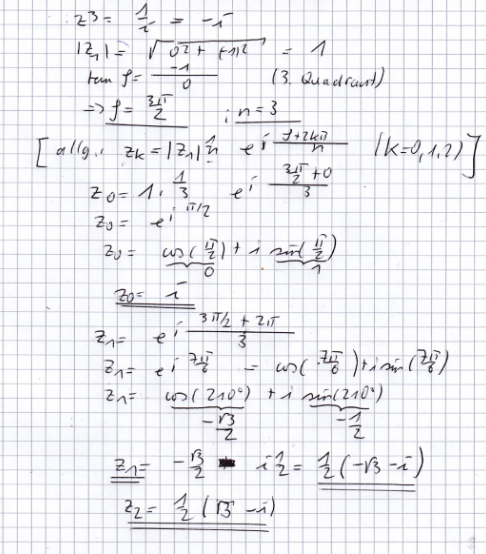 z³ = 1/i = -i
|z₁| = √(0² + (-1)²) = 1
tan φ = -1/0 (3. Quadrant)
=> φ = 3π/2 ; n = 3
[allg.: z_k = |z₁|^(1/n) e^(i (φ+2kπ)/n) (k=0,1,2)]
z₀ = 1^(1/3) e^(i (3π/2 + 0)/3)
z₀ = e^(i π/2)
z₀ = cos(π/2) + i sin(π/2)
0 1
z₀ = i
z₁ = e^(i (3π/2 + 2π)/3)
z₁ = e^(i 7π/6) = cos(7π/6) + i sin(7π/6)
z₁ = cos(210°) + i sin(210°)
-√3/2 -1/2
z₁ = -√3/2 - i 1/2 = 1/2 (-√3 - i)
z₂ = 1/2 (√3 - i)